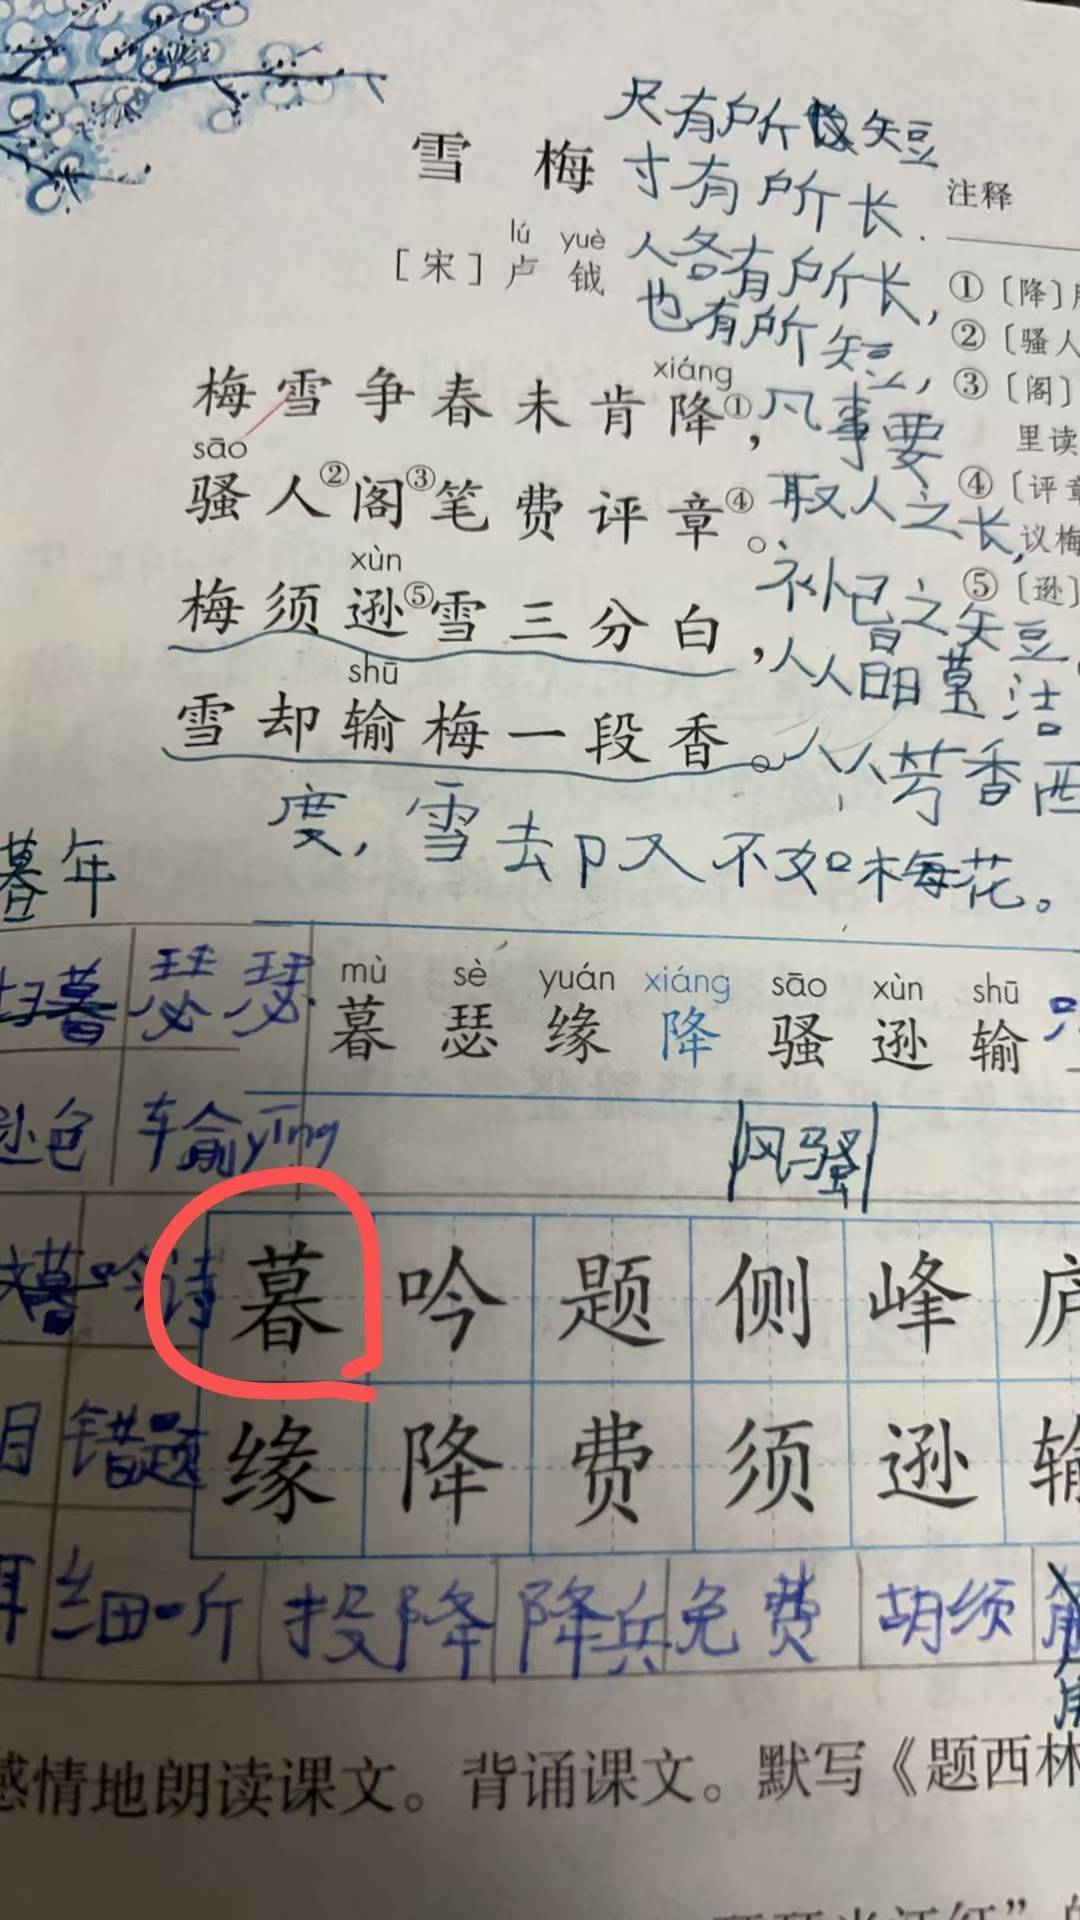 雪 梅
尺有所短
寸有所长.
注释
lú yuè
[宋]卢 钺
人各有所长,
也有所短,
①〔降〕
②〔骚人
③〔阁〕
里读
④〔评章
议梅
⑤〔逊〕
xiáng
梅雪争春未肯降①,
凡事要
sāo
骚人②阁③笔费评章④。
取人之长,
xùn
梅须逊⑤雪三分白,
补己之短。
人人
洁
shū
雪却输梅一段香。
芳香
度,雪却又不如梅花。
暮年
瑟瑟
mù sè yuán xiáng sāo xùn shū
暮 瑟 缘 降 骚 逊 输
逊色
输yíng
风骚
吟诗
暮 吟 题 侧 峰
错题
缘 降 费 须 逊 输
细 斤
投降 降兵 免费 胡须
感情地朗读课文。背诵课文。默写《题西林